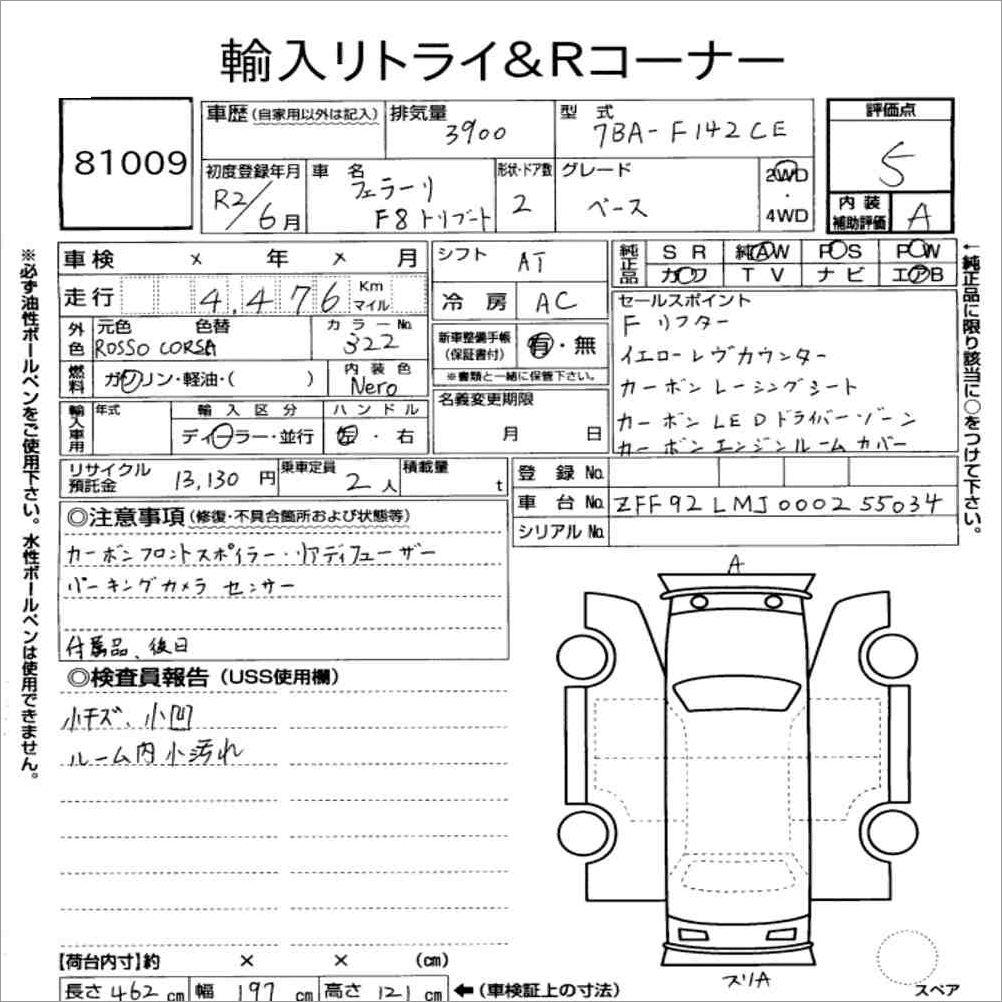 輸入リトライ&Rコーナー
81009
車歴(自家用以外は記入) 排気量 3900 型式 7BA-F142CE 評価点 5
初度登録年月 R2/6月 車名 フェラーリ F8トリブート 形状・ドア数 2 グレード ベース 2WD・4WD 内装補助評価 A
車検 × 年 × 月 シフト AT 純正品 SR 純AW PS PW
走行 4,476 Km マイル 冷房 AC カワ TV ナビ エアB
外色 元色 色替 ROSSO CORSA カラーNo. 322 新車整備手帳(保証書付) 有・無
※書類と一緒に保管下さい。
燃料 ガソリン・軽油・( ) 内装色 Nero
輸入車用 年式 輸入区分 ディーラー・並行 ハンドル 左・右 名義変更期限 月 日
セールスポイント
Fリフター
イエローレヴカウンター
カーボンレーシングシート
カーボンLEDドライバーゾーン
カーボンエンジンルームカバー
リサイクル預託金 13,130円 乗車定員 2人 積載量 t 登録No.
車台No. ZFF92LMJ000255034
シリアルNo.
◎注意事項(修復・不具合箇所および状態等)
カーボンフロントスポイラー・リアディフューザー
パーキングカメラ センサー
付属品、後日
◎検査員報告(USS使用欄)
小キズ、小凹
ルーム内小汚れ
A
スリA
スペア
【荷台内寸】約 × × (cm)
長さ 462cm 幅 197cm 高さ 121cm ←(車検証上の寸法)
※必ず油性ボールペンをご使用下さい。水性ボールペンは使用できません。
←純正品に限り該当に○をつけて下さい。